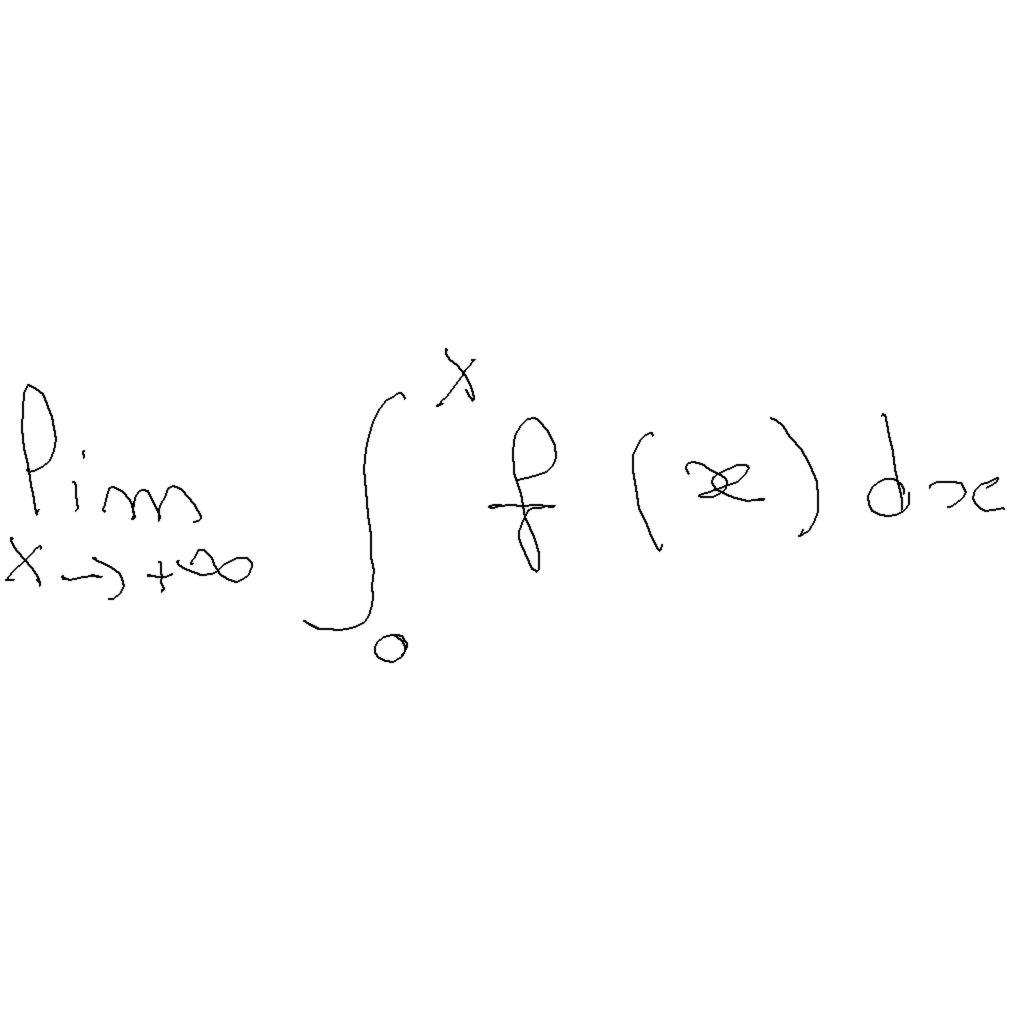 \lim_{X \to +\infty} \int_0^X f(x) dx